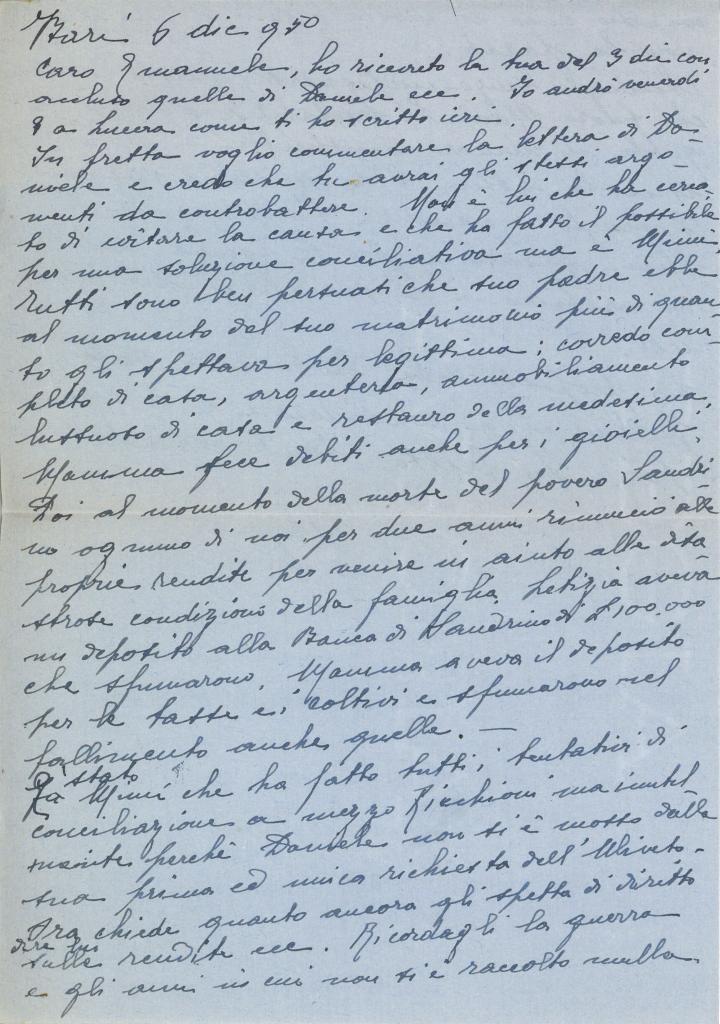 Bari 6 dic 950
Caro Emanuele, ho ricevuto la tua del 3 dic con
accluso quelle di Daniele ecc. Io andrò venerdì
8 a Lucera come ti ho scritto ieri.
In fretta voglio commentare la lettera di Da-
niele e credo che tu avrai gli stessi argo-
menti da controbattere. Non è lui che ha cerca-
to di evitare la causa e che ha fatto il possibile
per una soluzione conciliativa ma è Mimì,
Tutti sono ben persuasi che suo padre ebbe
al momento del suo matrimonio più di quan-
to gli spettava per legittima; corredo com-
pleto di casa, argenteria, ammobiliamento
lussuoso di casa e restauro della medesima,
Mamma fece debiti anche per i gioielli.
Poi al momento della morte del povero Sandri
no ognuno di noi per due anni rinunciò alle
proprie rendite per venire in aiuto alle disa
strose condizioni della famiglia, Letizia aveva
un deposito alla Banca di Sandrino di £100,000
che sfumarono. Mamma aveva il deposito
per le tasse e i coltivi e sfumarono nel
fallimento anche quelle. —
È stato
Mimì che ha fatto tutti i tentativi di
conciliazione a mezzo Ricchioni ma inutil
mente perchè Daniele non si è mosso dalla
sua prima ed unica richiesta dell'Uliveto-
Ora chiede quanto ancora gli spetta di diritto
sulle rendite ecc. Ricordagli la guerra
e gli anni in cui non si è raccolto nulla.